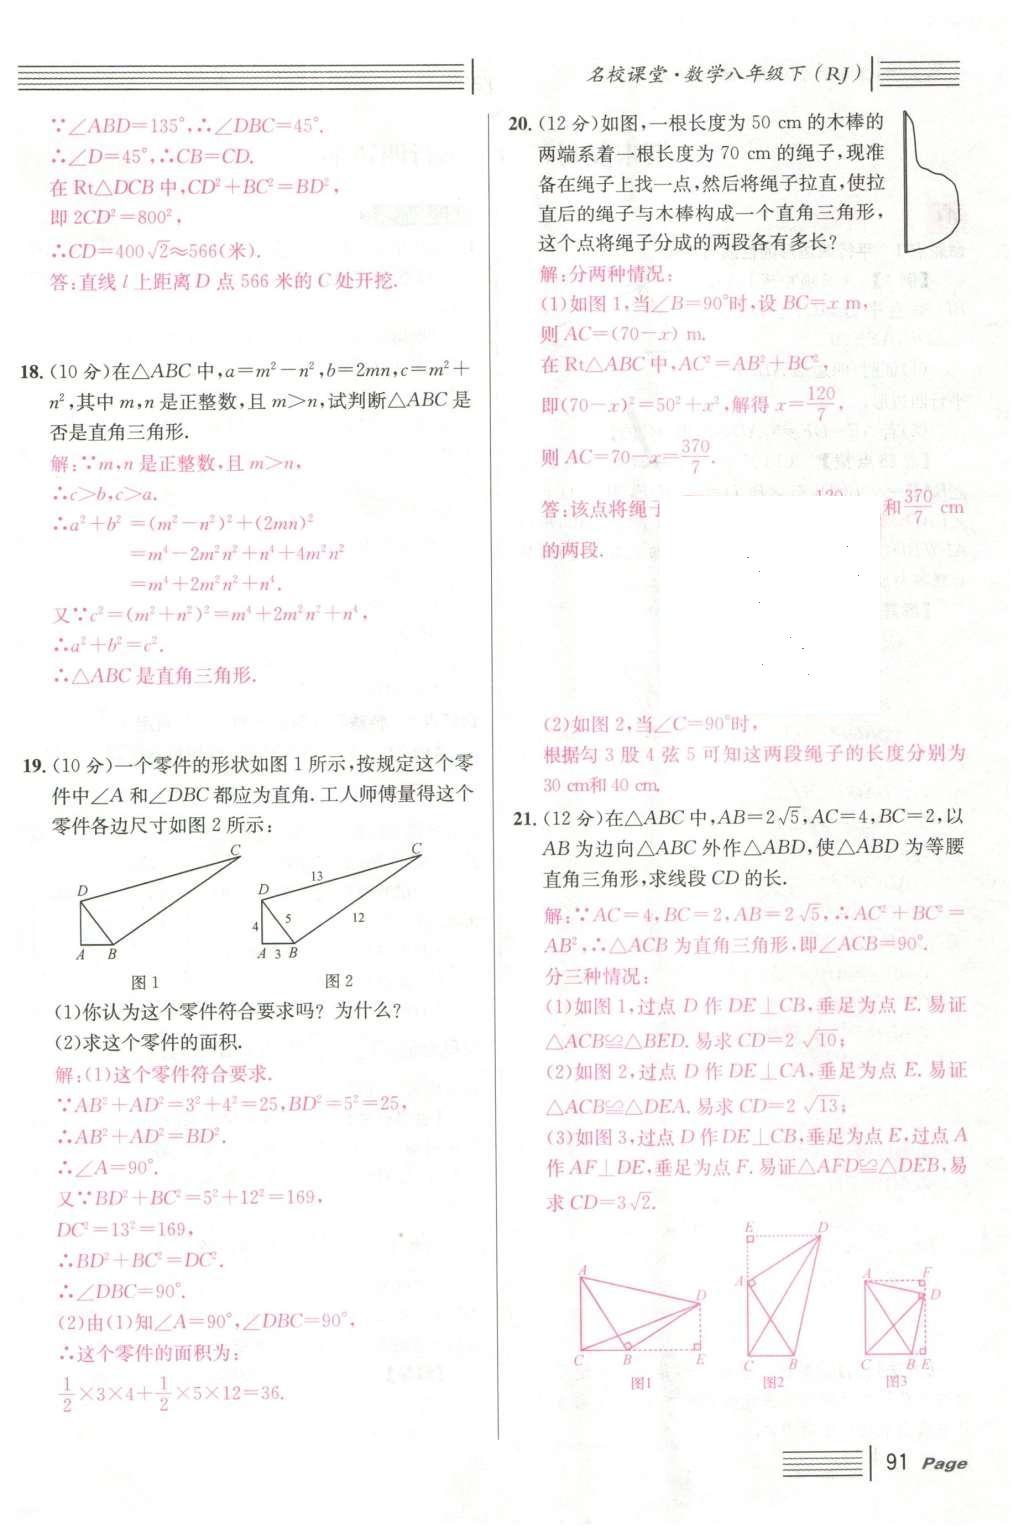 名校课堂·数学八年级下(RJ)
∵∠ABD=135°,∴∠DBC=45°.
∴∠D=45°,∴CB=CD.
在 Rt△DCB 中,CD²+BC²=BD²,
即 2CD²=800²,
∴CD=400√2≈566(米).
答:直线 l 上距离 D 点 566 米的 C 处开挖.
18.(10 分)在△ABC 中,a=m²-n²,b=2mn,c=m²+
n²,其中 m,n 是正整数,且 m>n,试判断△ABC 是
否是直角三角形.
解:∵m,n 是正整数,且 m>n,
∴c>b,c>a.
∴a²+b²=(m²-n²)²+(2mn)²
=m⁴-2m²n²+n⁴+4m²n²
=m⁴+2m²n²+n⁴.
又∵c²=(m²+n²)²=m⁴+2m²n²+n⁴,
∴a²+b²=c².
∴△ABC 是直角三角形.
19.(10 分)一个零件的形状如图 1 所示,按规定这个零
件中∠A 和∠DBC 都应为直角.工人师傅量得这个
零件各边尺寸如图 2 所示:
C
D
A B
图 1
C
D
13
5
4
12
A 3 B
图 2
(1)你认为这个零件符合要求吗? 为什么?
(2)求这个零件的面积.
解:(1)这个零件符合要求.
∵AB²+AD²=3²+4²=25,BD²=5²=25,
∴AB²+AD²=BD².
∴∠A=90°.
又∵BD²+BC²=5²+12²=169,
DC²=13²=169,
∴BD²+BC²=DC².
∴∠DBC=90°.
(2)由(1)知∠A=90°,∠DBC=90°,
∴这个零件的面积为:
1/2×3×4+1/2×5×12=36.
20.(12 分)如图,一根长度为 50 cm 的木棒的
两端系着一根长度为 70 cm 的绳子,现准
备在绳子上找一点,然后将绳子拉直,使拉
直后的绳子与木棒构成一个直角三角形,
这个点将绳子分成的两段各有多长?
解:分两种情况:
(1)如图 1,当∠B=90°时,设 BC=x m,
则 AC=(70-x) m.
在 Rt△ABC 中,AC²=AB²+BC²,
即(70-x)²=50²+x²,解得 x=120/7,
则 AC=70-x=370/7.
答:该点将绳子 和370/7 cm
的两段.
(2)如图 2,当∠C=90°时,
根据勾 3 股 4 弦 5 可知这两段绳子的长度分别为
30 cm和 40 cm.
21.(12 分)在△ABC 中,AB=2√5,AC=4,BC=2,以
AB 为边向△ABC 外作△ABD,使△ABD 为等腰
直角三角形,求线段 CD 的长.
解:∵AC=4,BC=2,AB=2√5,∴AC²+BC²=
AB²,∴△ACB 为直角三角形,即∠ACB=90°.
分三种情况:
(1)如图 1,过点 D 作 DE⊥CB,垂足为点 E.易证
△ACB≌△BED.易求 CD=2√10;
(2)如图 2,过点 D 作 DE⊥CA,垂足为点 E.易证
△ACB≌△DEA.易求 CD=2√13;
(3)如图 3,过点 D 作DE⊥CB,垂足为点 E,过点 A
作 AF⊥DE,垂足为点 F.易证△AFD≌△DEB,易
求 CD=3√2.
A
D
C B E
图1
E D
A
C B
图2
A F
D
C B E
图3
91 Page